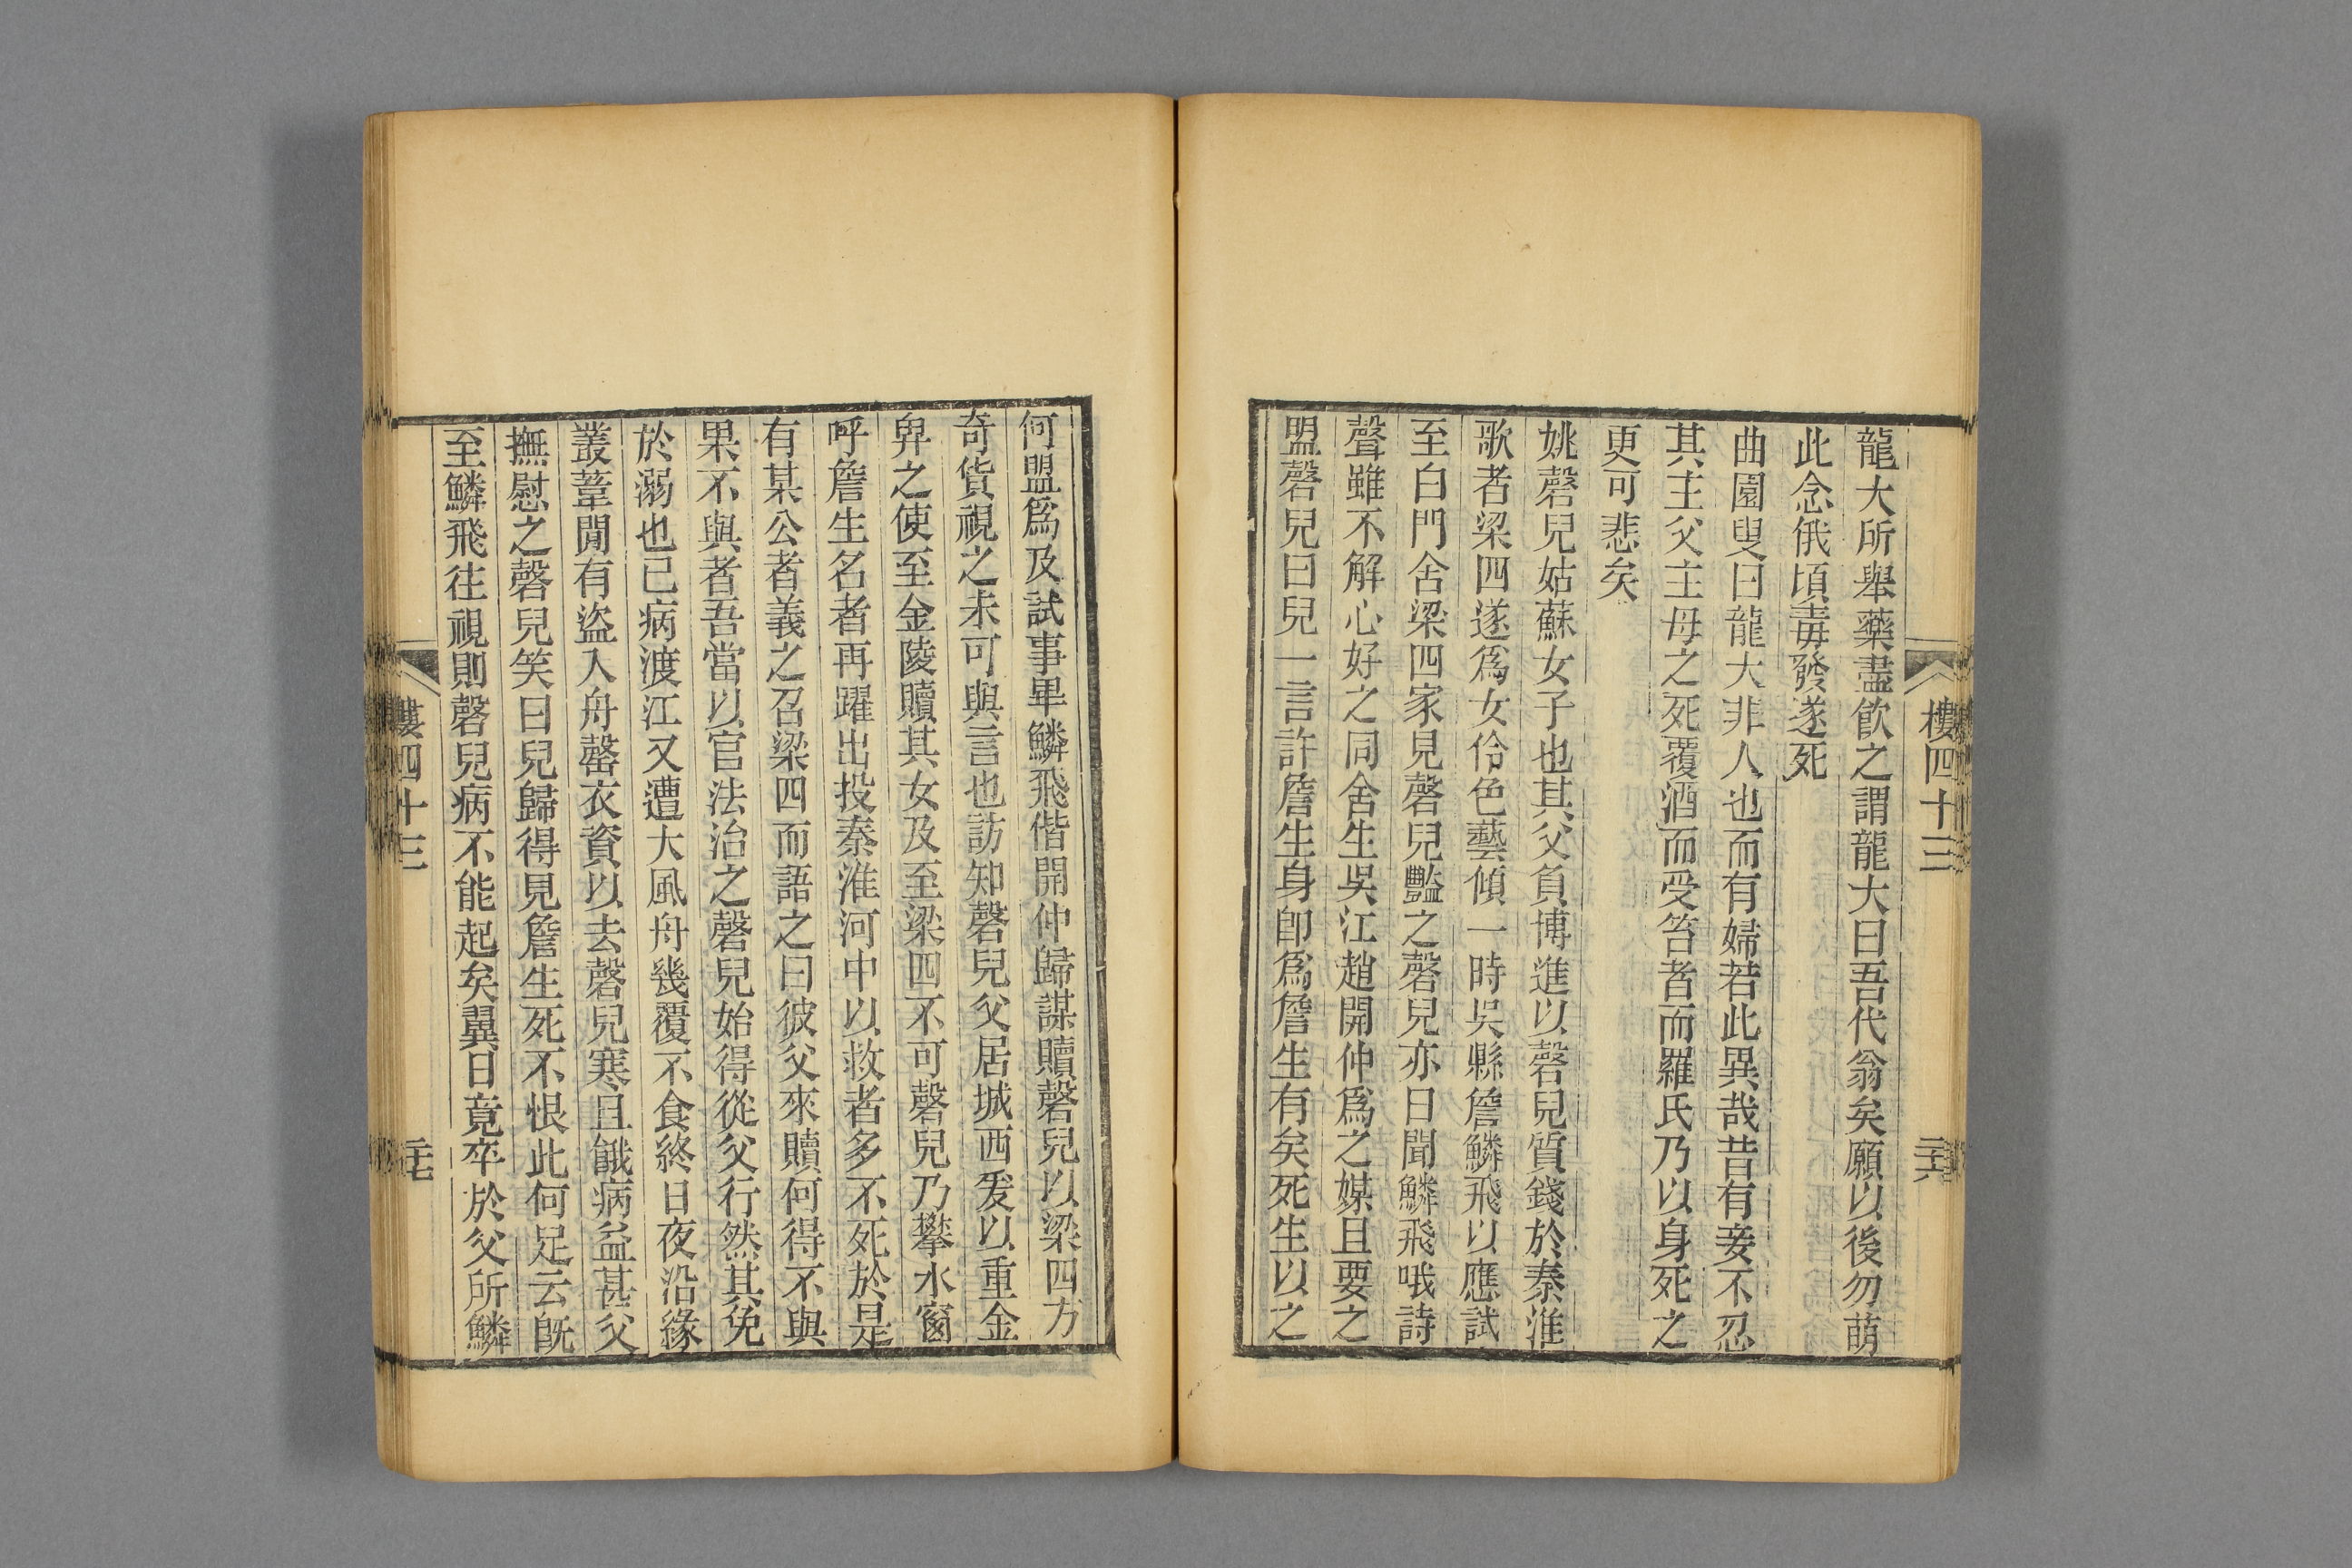 樓四十三
二十六
龍大所舉藥盡飮之謂龍大曰吾代翁矣願以後勿萌
此念俄頃毒發遂死
曲園叟曰龍大非人也而有婦若此異哉昔有妾不忍
其主父主母之死覆酒而受笞者而羅氏乃以身死之
更可悲矣
姚磬兒姑蘇女子也其父負博進以磬兒質錢於秦淮
歌者梁四遂爲女伶色藝傾一時吳縣詹鱗飛以應試
至白門舍梁四家見磬兒豔之磬兒亦日聞鱗飛哦詩
聲雖不解心好之同舍生吳江趙開仲爲之媒且要之
盟磬兒曰兒一言許詹生身卽爲詹生有矣死生以之
何盟爲及試事畢鱗飛偕開仲歸謀贖磬兒以梁四方
奇貨視之未可與言也訪知磬兒父居城西爰以重金
畀之使至金陵贖其女及至梁四不可磬兒乃攀水窗
呼詹生名者再躍出投秦淮河中以救者多不死於是
有某公者義之召梁四而語之曰彼父來贖何得不與
果不與者吾當以官法治之磬兒始得從父行然其免
於溺也已病渡江又遭大風舟幾覆不食終日夜沿緣
叢葦閒有盜入舟罄衣資以去磬兒寒且饑病益甚父
撫慰之磬兒笑曰兒歸得見詹生死不恨此何足云旣
至鱗飛往視則磬兒病不能起矣翼日竟卒於父所鱗
樓四十三
二十七